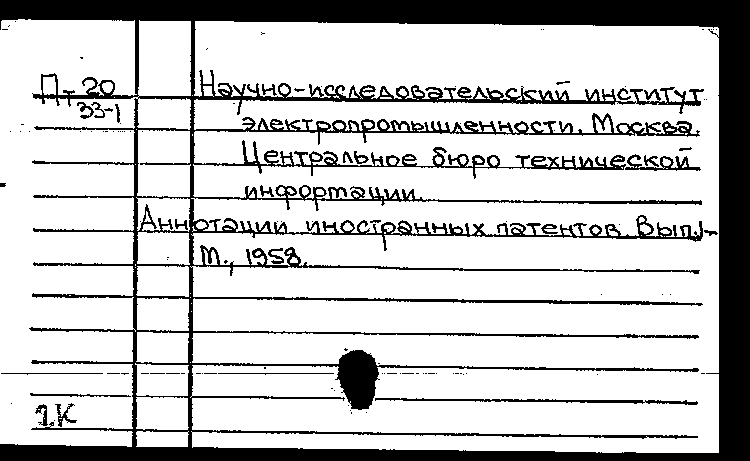 Пт 20
33-1
Научно-исследовательский институт
электропромышленности. Москва.
Центральное бюро технической
информации.
Аннотации иностранных патентов. Вып.1-
М., 1958.
2К